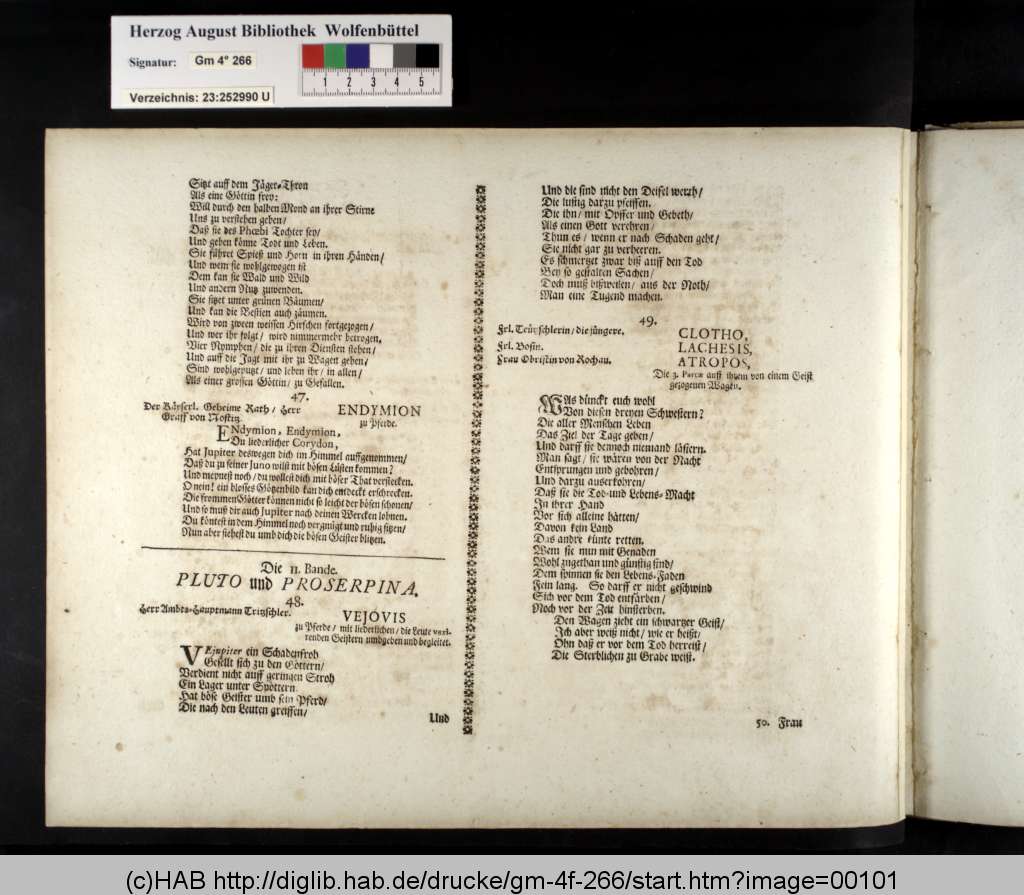 Herzog August Bibliothek Wolfenbüttel
Signatur: Gm 4° 266
Verzeichnis: 23:252990 U
1 2 3 4 5
Sitzt auff dem Jäger-Thron
Als eine Göttin frey:
Will durch den halben Mond an ihrer Stirne
Uns zu verstehen geben/
Daß sie des Phœbi Tochter sey/
Und geben könne Todt und Leben.
Sie führet Spieß und Horn in ihren Händen/
Und wem sie wohlgewogen ist
Dem kan sie Wald und Wild
Und andern Nutz zuwenden.
Sie sitzet unter grünen Bäumen/
Und kan die Bestien auch zäumen.
Wird von zween weissen Hirschen fortgezogen/
Und wer ihr folgt/ wird nimmermehr betrogen.
Vier Nymphen/ die zu ihren Diensten stehen/
Und auff die Jagt mit ihr zu Wagen gehen/
Sind wohlgeputzt/ und leben ihr/ in allen/
Als einer grossen Göttin/ zu Gefallen.
47.
Der Käyserl. Geheime Rath/ Herr
Graff von Nostitz.
ENDYMION
zu Pferde.
ENdymion, Endymion,
Du liederlicher Corydon,
Hat Jupiter deswegen dich im Himmel auffgenommen/
Daß du zu seiner Juno wilst mit bösen Lüsten kommen?
Und meynest noch/ du wollest dich mit böser That verstecken.
O nein! ein blosses Götzenbild kan dich entdeckt erschrecken.
Die frommen Götter können nicht so leicht der bösen schonen/
Und so muß dir auch Jupiter nach deinen Wercken lohnen.
Du köntest in dem Himmel noch vergnügt und ruhig sitzen/
Nun aber siehest du umb dich die bösen Geister blitzen.
Die 11. Bande.
PLUTO und PROSERPINA.
48.
Herr Ambts-Hauptmann Tritzschler.
VEJOVIS
zu Pferde/ mit liederlichen/ die Leute verirrenden
Geistern umbgeben und begleitet.
VEjupiter ein Schadenfroh
Gesellt sich zu den Göttern/
Verdient nicht auff geringen Stroh
Ein Lager unter Spöttern.
Hat böse Geister umb sein Pferd/
Die nach den Leuten greiffen/
Und
Und die sind nicht den Deifel werth/
Die lustig darzu pfeiffen.
Die ihn/ mit Opffer und Gebeth/
Als einen Gott verehren/
Thun es/ wenn er nach Schaden geht/
Sie nicht gar zu verheeren.
Es schmertzet zwar biß auff den Tod
Bey so gestalten Sachen/
Doch muß bißweilen/ aus der Noth/
Man eine Tugend machen.
49.
Frl. Teützschlerin/ die jüngere.
Frl. Bosin.
Frau Obristin von Rochau.
CLOTHO,
LACHESIS,
ATROPOS,
Die 3. Parcæ auff ihrem von einem Geist
gezogenen Wagen.
WAs dünckt euch wohl
Von diesen dreyen Schwestern?
Die aller Menschen Leben
Das Ziel der Tage geben/
Und darff sie dennoch niemand lästern.
Man sagt/ sie wären von der Nacht
Entsprungen und gebohren/
Und darzu auserkohren/
Daß sie die Tod-und Lebens-Macht
In ihrer Hand
Vor sich alleine hätten/
Davon kein Land
Das andre künte retten.
Wem sie nun mit Genaden
Wohl zugethan und günstig sind/
Dem spinnen sie den Lebens-Faden
Fein lang. So darff er nicht geschwind
Sich vor dem Tod entfärben/
Noch vor der Zeit hinsterben.
Den Wagen zieht ein schwartzer Geist/
Ich aber weiß nicht/ wie er heißt/
Ohn daß er vor dem Tod herreist/
Die Sterblichen zu Grabe weist.
50. Frau
(c)HAB http://diglib.hab.de/drucke/gm-4f-266/start.htm?image=00101